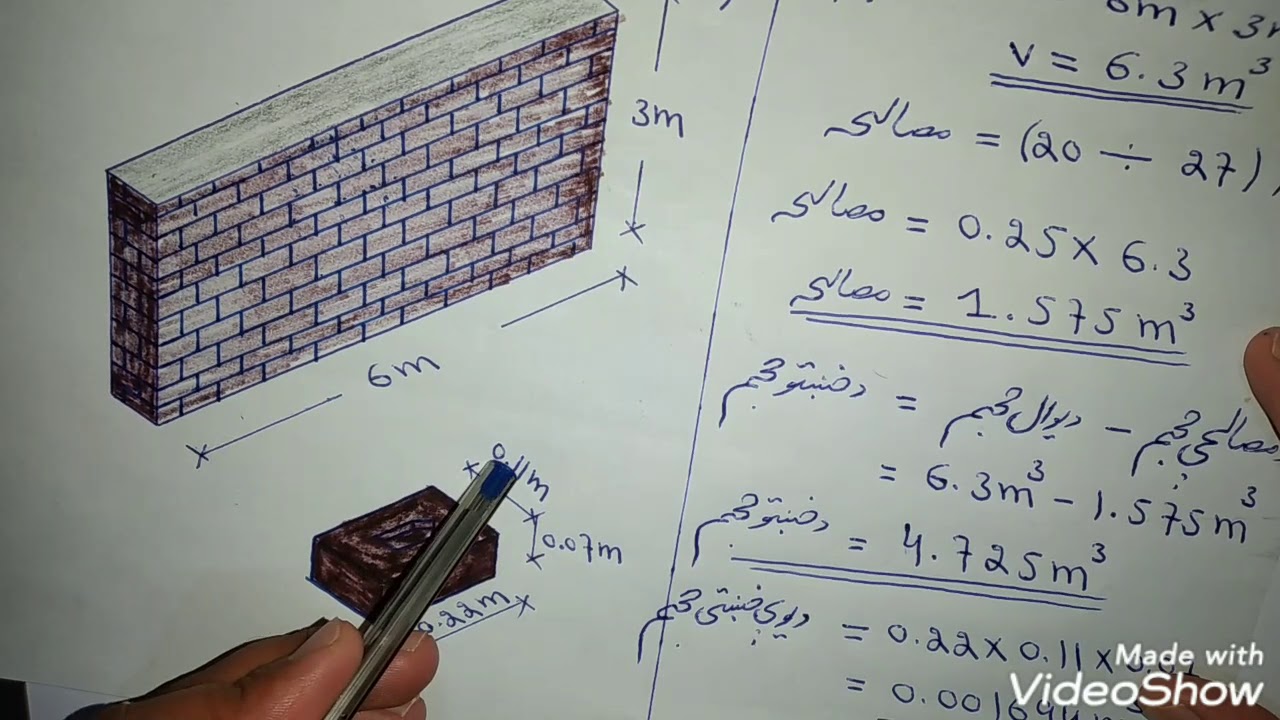 3m
6m
0.11m
0.07m
0.22m
6m x 3
V = 6.3 m³
مصالح = (20 ÷ 27)
مصالح = 0.25 x 6.3
مصالح = 1.575 m³
دخښتو حجم = دیوال حجم - مصالحې حجم
= 6.3m³ - 1.575m³
دخښتو حجم = 4.725m³
دیوې خښتې حجم = 0.22 x 0.11 x 0.0
= 0.001694
Made with
VideoShow